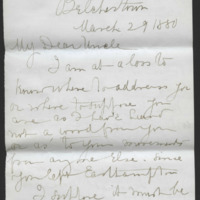 Belchertown
March 29 1880
My Dear Uncle
I am at a loss to
know where to address you
or where to suppose you
are as I have heard
not a word from you
or as to your movements
from any one else. Since
you left Easthampton
I suppose it must be